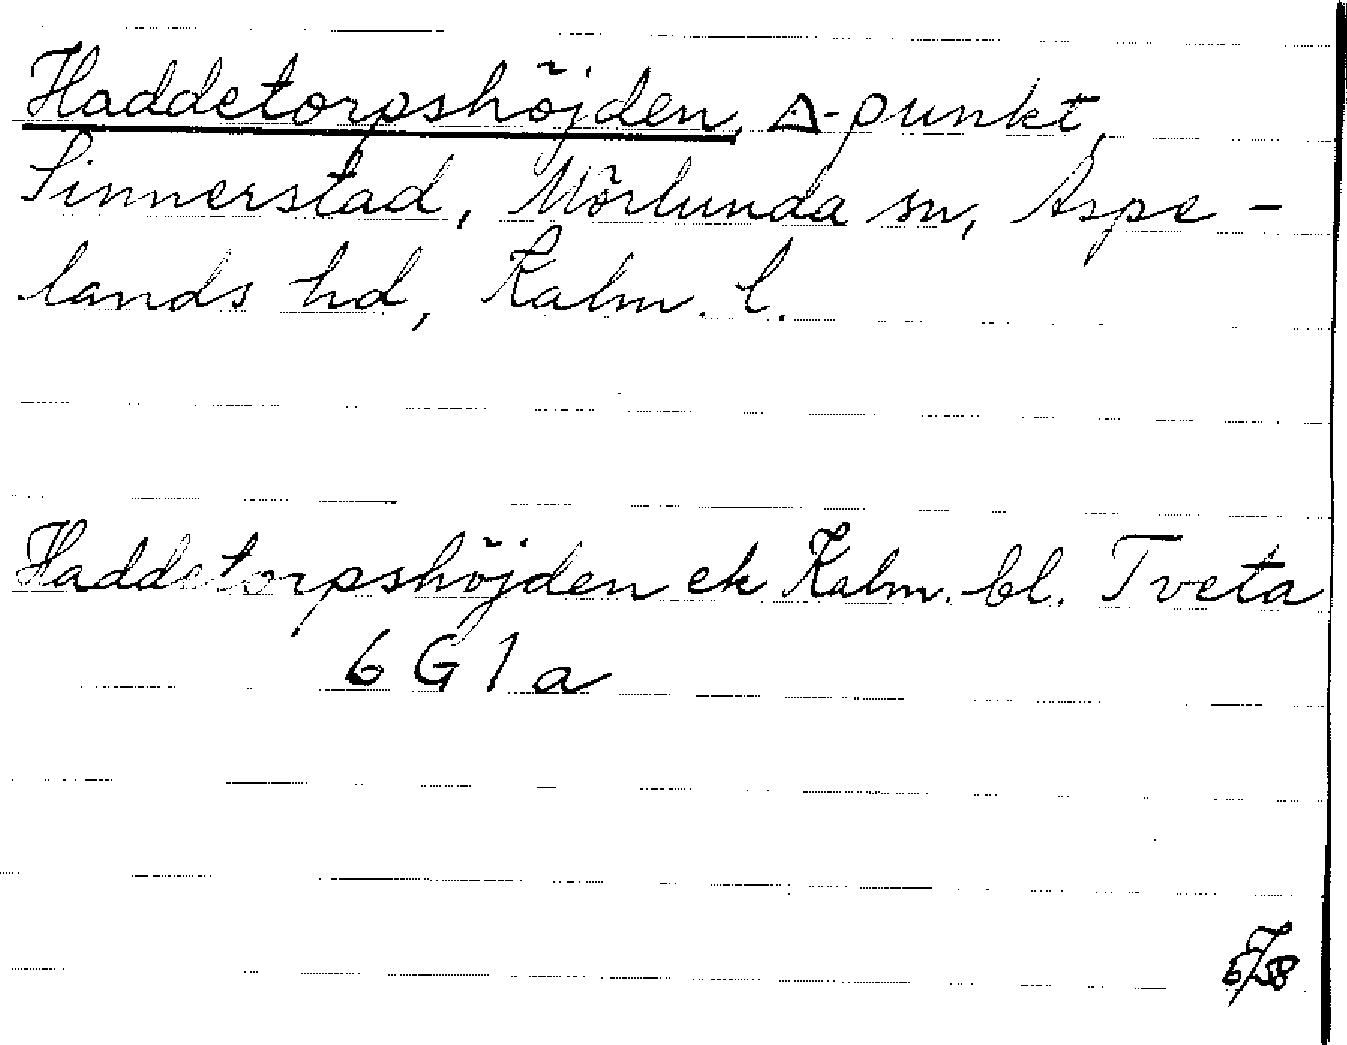 Haddetorpshöjden, Δ-punkt,
Sinnerstad, Mörlunda sn, Aspe-
lands hd, Kalm. l.
Haddetorpshöjden ek Kalm. bl. Tveta
6 G 1 a